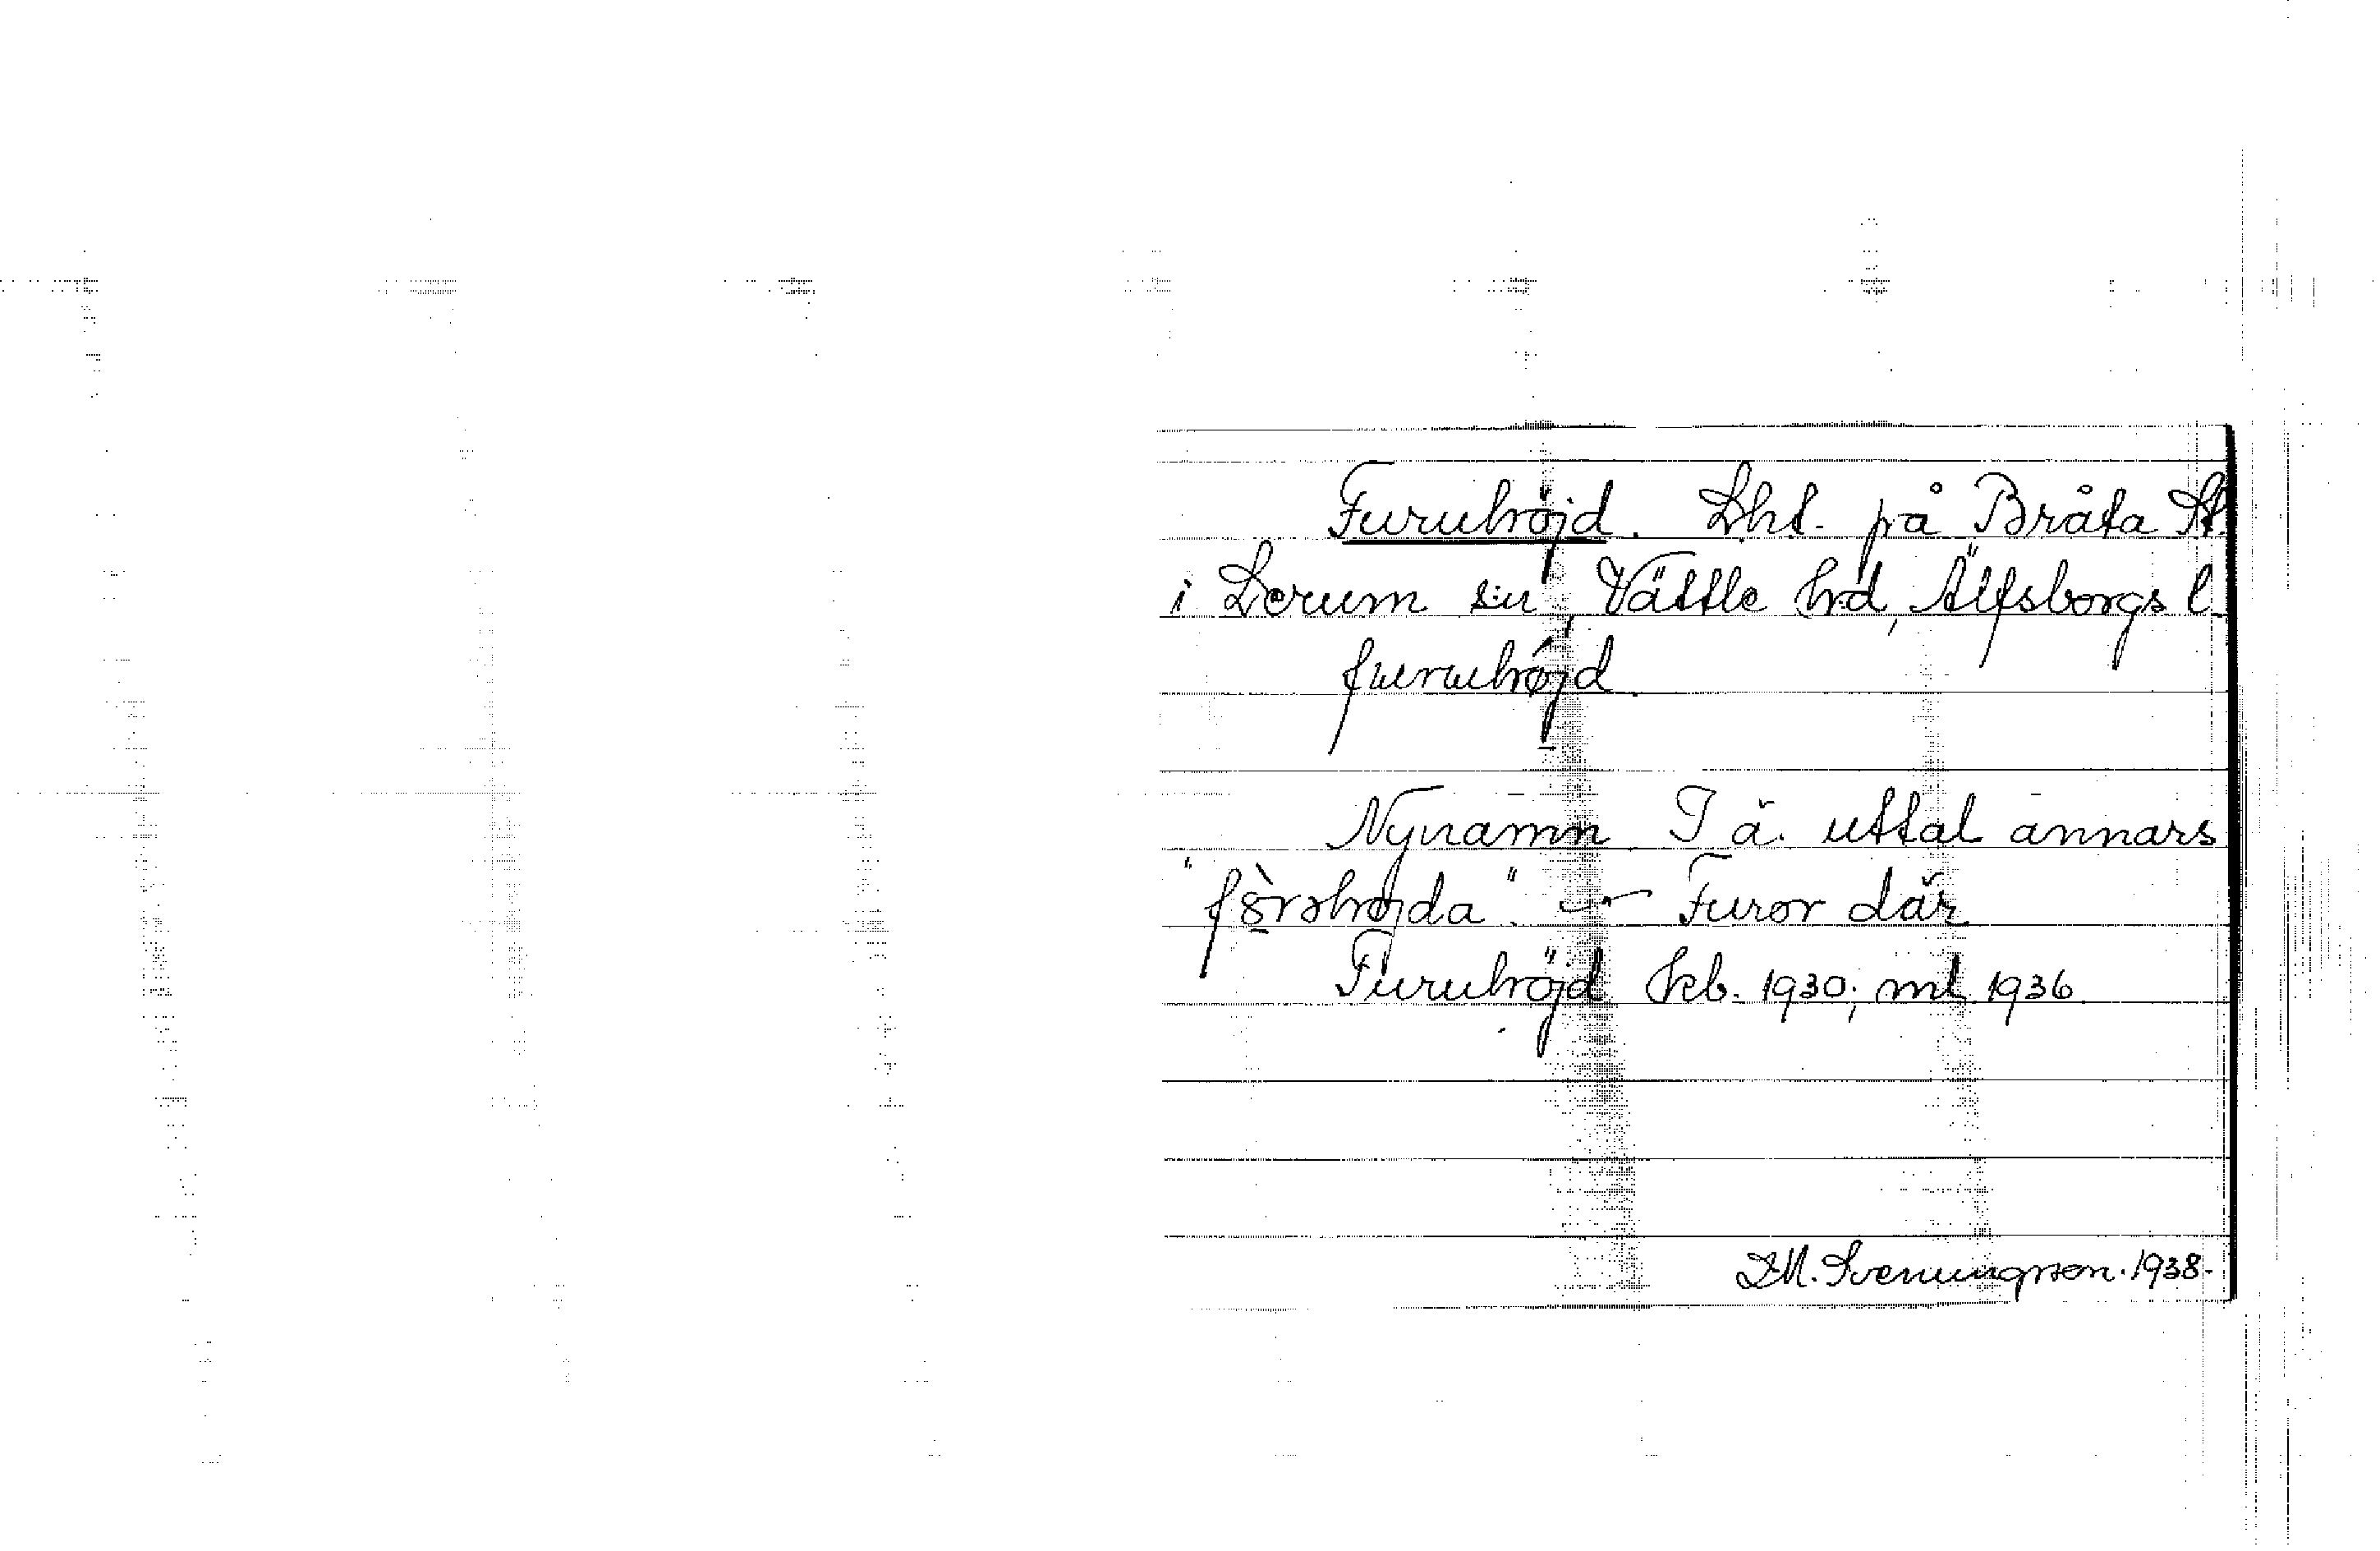 Furuhöjd. Lht. på Bråta St.
i Lerum sn, Vättle hd, Älfsborgs l.
furuhöjd
Nynamn I ä. uttal annars
"förəhöjda". — Furor där
Furuhöjd kb. 1930; ml 1936
D.M. Svenungsson. 1938.